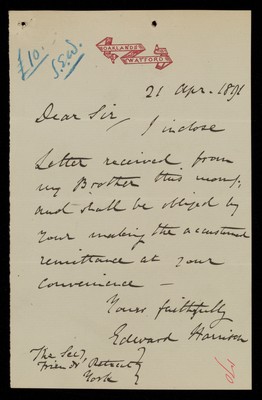 £10.
S.S.W.
OAKLANDS
WATFORD.
21 Apr. 1891
Dear Sir / I inclose
Letter received from
my Brother this morng,
and shall be obliged by
your making the accustomed
remittance at your
convenience —
Yours faithfully
Edward Harrison
The Secy
Friends' Retreat
York